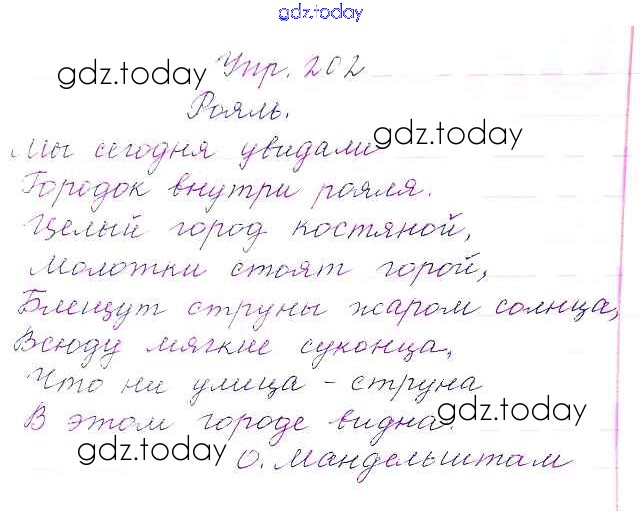 gdz.today
Упр. 202
gdz.today
Рояль.
gdz.today
Мы сегодня увидали
Городок внутри рояля.
Целый город костяной,
Молотки стоят горой,
Блещут струны жаром солнца,
Всюду мягкие суконца,
Что ни улица - струна
gdz.today
В этом городе видна.
gdz.today
О. Мандельштам